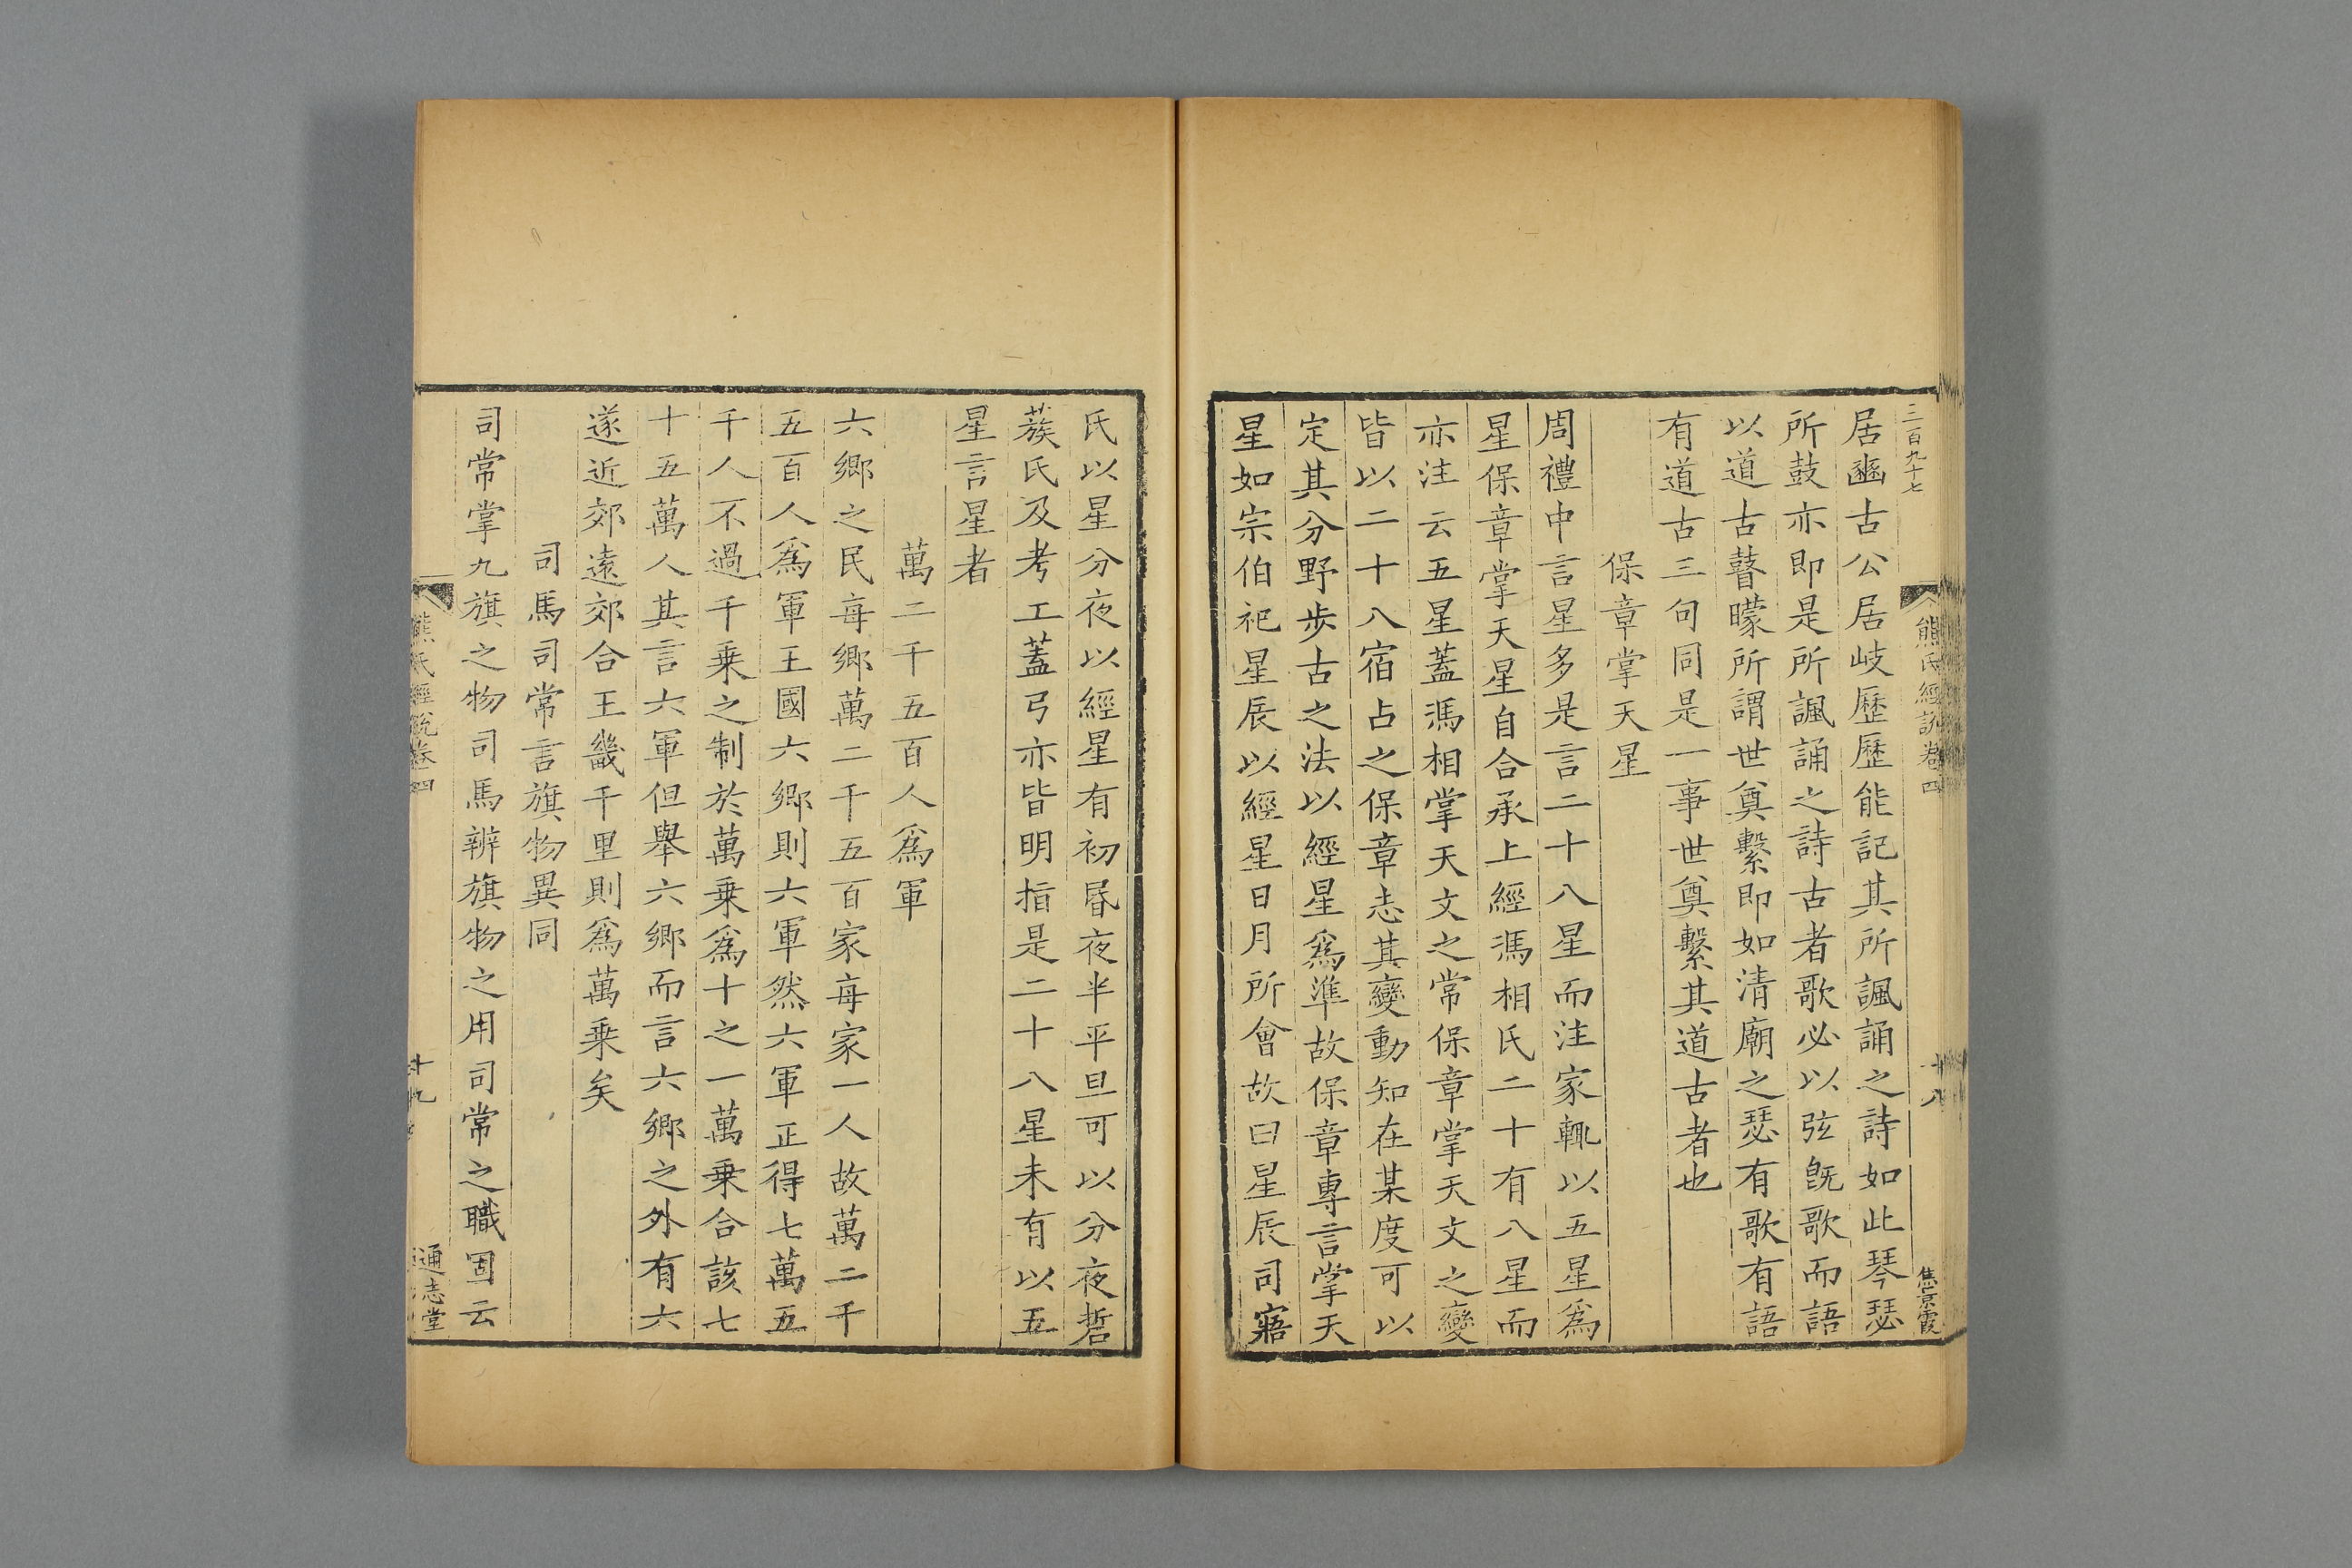 三百九十七
熊氏經說卷四
十八
焦景霞
居豳古公居岐歷歷能記其所諷誦之詩如此琴瑟
所鼓亦即是所諷誦之詩古者歌必以弦旣歌而語
以道古瞽矇所謂世奠繫即如清廟之瑟有歌有語
有道古三句同是一事世奠繫其道古者也
保章掌天星
周禮中言星多是言二十八星而注家輒以五星爲
星保章掌天星自合承上經馮相氏二十有八星而
亦注云五星蓋馮相掌天文之常保章掌天文之變
皆以二十八宿占之保章志其變動知在某度可以
定其分野步古之法以經星爲準故保章專言掌天
星如宗伯祀星辰以經星日月所會故曰星辰司寤
氏以星分夜以經星有初昏夜半平旦可以分夜硩
蔟氏及考工蓋弓亦皆明指是二十八星未有以五
星言星者
萬二千五百人爲軍
六鄉之民每鄉萬二千五百家每家一人故萬二千
五百人爲軍王國六鄉則六軍然六軍正得七萬五
千人不過千乗之制於萬乗爲十之一萬乗合該七
十五萬人其言六軍但舉六鄉而言六鄉之外有六
遂近郊遠郊合王畿千里則爲萬乗矣
司馬司常言旗物異同
司常掌九旗之物司馬辨旗物之用司常之職固云
熊氏經說卷四
十九
通志堂